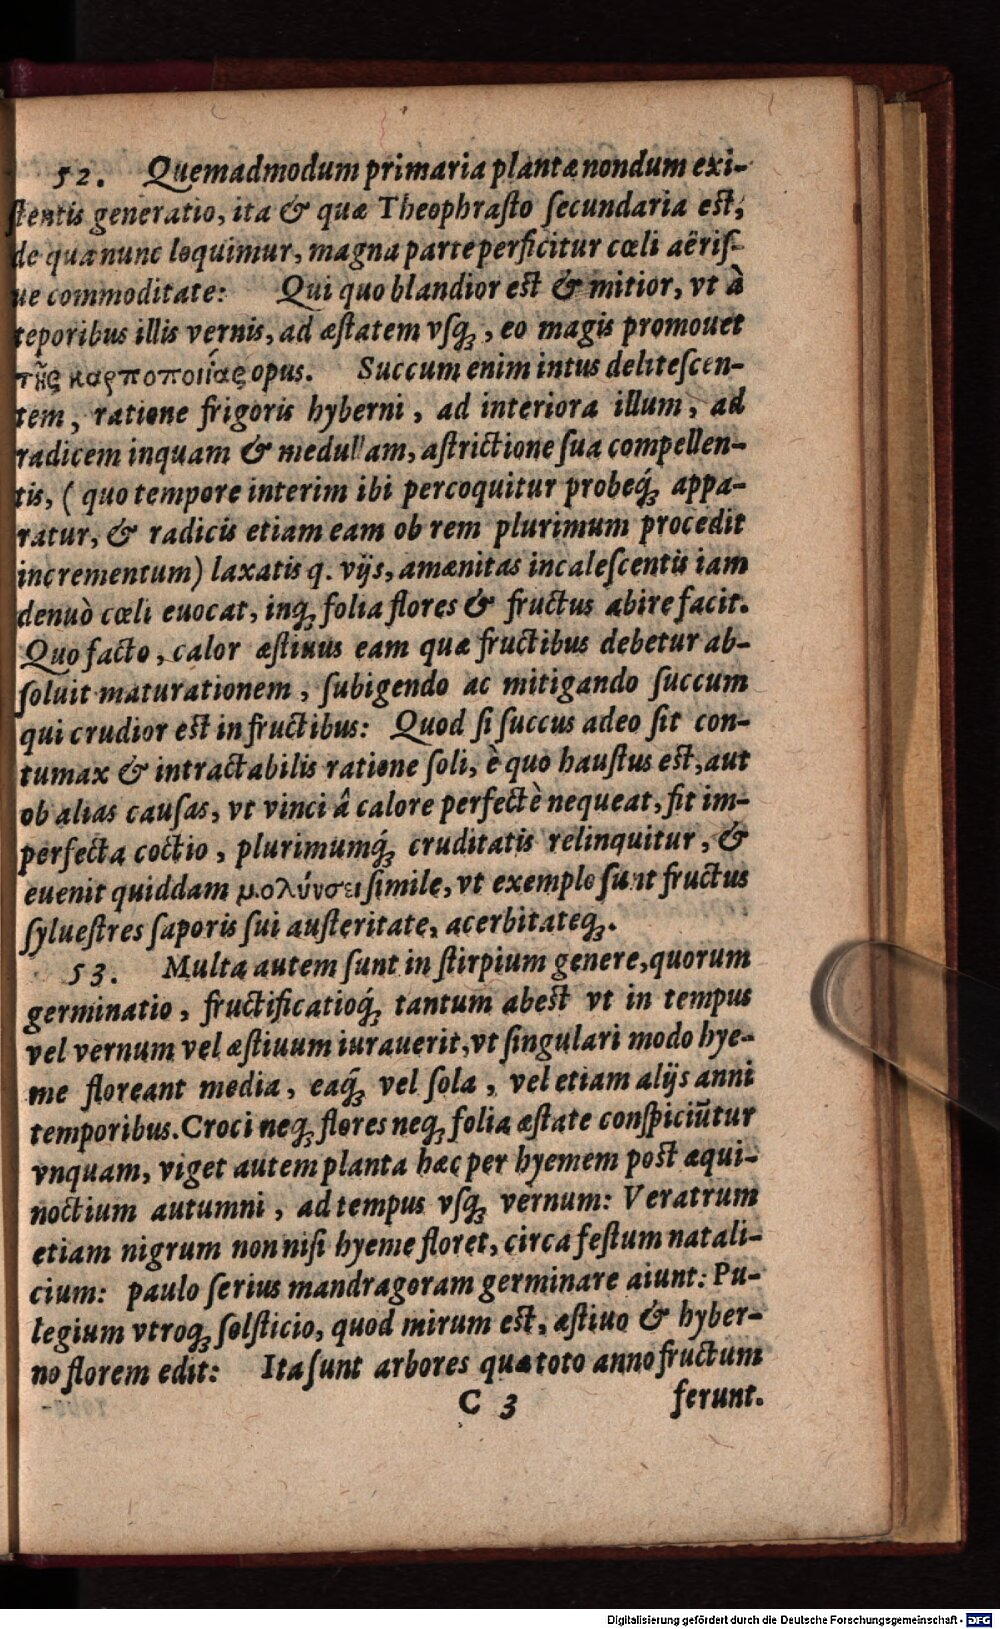 52. Quemadmodum primaria plantæ nondum exi-
ſtentis generatio, ita & quæ Theophraſto ſecundaria eſt,
de qua nunc loquimur, magna parte perficitur cœli aëriſ-
ue commoditate: Qui quo blandior eſt & mitior, vt à
teporibus illis vernis, ad æſtatem vſq́;, eo magis promouet
τῆς καρποποιίας opus. Succum enim intus deliteſcen-
tem, ratione frigoris hyberni, ad interiora illum, ad
radicem inquam & medullam, aſtrictione ſua compellen-
tis, ( quo tempore interim ibi percoquitur probeq́; appa-
ratur, & radicis etiam eam ob rem plurimum procedit
incrementum) laxatis q. vijs, amænitas incaleſcentis iam
denuò cœli euocat, inq; folia flores & fructus abire facit.
Quo facto, calor æſtiuus eam quæ fructibus debetur ab-
ſoluit maturationem, ſubigendo ac mitigando ſuccum
qui crudior eſt in fructibus: Quod ſi ſuccus adeo ſit con-
tumax & intractabilis ratione ſoli, è quo hauſtus eſt, aut
ob alias cauſas, vt vinci â calore perfectè nequeat, fit im-
perfecta coctio, plurimumq́; cruditatis relinquitur, &
euenit quiddam μολύνσει ſimile, vt exemplo ſunt fructus
ſylueſtres ſaporis ſui auſteritate, acerbitateq;.
53. Multa autem ſunt in ſtirpium genere, quorum
germinatio, fructificatioq́; tantum abeſt vt in tempus
vel vernum vel æſtiuum iurauerit, vt ſingulari modo hye-
me floreant media, eaq́; vel ſola, vel etiam alijs anni
temporibus. Croci neq; flores neq; folia æſtate conſpiciūtur
vnquam, viget autem planta hæc per hyemem poſt æqui-
noctium autumni, ad tempus vſq; vernum: Veratrum
etiam nigrum non niſi hyeme floret, circa feſtum natali-
cium: paulo ſerius mandragoram germinare aiunt: Pu-
legium vtroq; ſolſticio, quod mirum eſt, æſtiuo & hyber-
no florem edit: Ita ſunt arbores quæ toto anno fructum
C 3 ferunt.
Digitalisierung gefördert durch die Deutsche Forschungsgemeinschaft - DFG